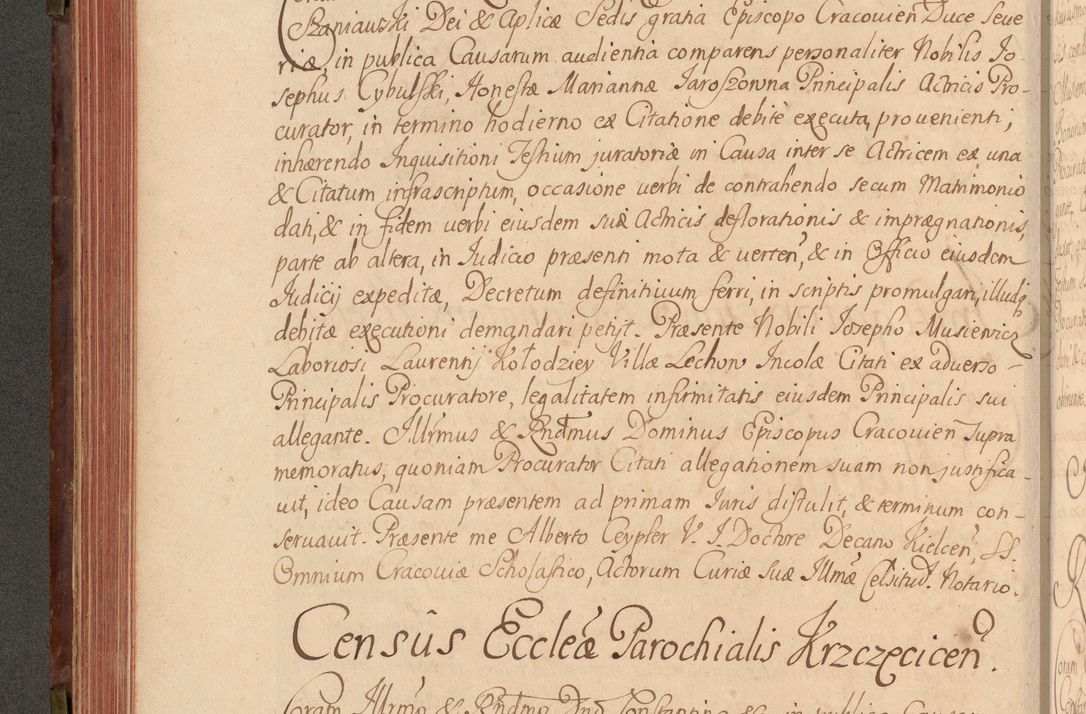 Szaniawski Dei & Aplicæ Sedis gratia Episcopo Cracovien Duce Seve
riæ, in publica Causarum audientia comparens personaliter Nobilis Jo-
sephus Cybulski, Honestæ Mariannæ Jaroszowna Principalis Actricis Pro-
curator, in termino hodierno ex Citatione debite executa, provenienti,
inhærendo Inquisitioni Testium juratoriæ in Causa inter se Actricem ex una
& Citatum infrascriptum, occasione verbi de contrahendo secum Matrimonio
dati, & in fidem verbi eiusdem suæ Actricis deflorationis & imprægnationis,
parte ab altera, in Iudicio præsenti mota & verten, & in Officio eiusdem
Iudicij expeditæ, Decretum definitivum ferri, in scriptis promulgari, illudq
debitæ executioni demandari petijt. Præsente Nobili Iozepho Musiewicz
Laboriosi Laurentij Kołodziey Villæ Lechow Incolæ Citati ex adverso -
Principalis Procuratore, legalitatem infirmitatis eiusdem Principalis sui
allegante. Illrmus & Rndmus Dominus Episcopus Cracovien supra
memoratus, quoniam Procurator Citati allegationem suam non justifica-
vit, ideo Causam præsentem ad primam Iuris distulit, & terminum con-
servavit. Præsente me Alberto Ceypler V. I. Doctore Decano Kielcen, SS.
Omnium Cracoviæ Scholastico, Actorum Curiæ suæ Illmæ Celsitud. Notario.
Censûs Eccleæ Parochialis Krzczęcicen.
Coram Illrmo & Rndmo Dno Constantino &c. in publica Causar